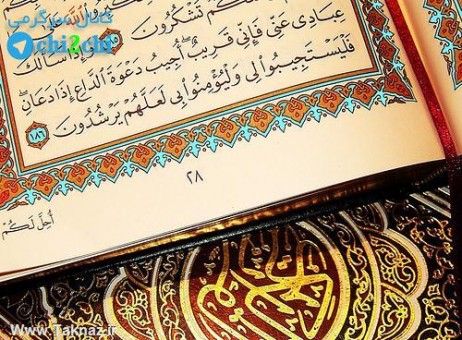 کانال سرگرمی
chi2chi
لَّكُمْ تَشْكُرُونَ ١٨٥ وَإِذَا سَأَلَكَ
عِبَادِى عَنِّى فَإِنِّى قَرِيبٌ أُجِيبُ دَعْوَةَ الدَّاعِ إِذَا دَعَانِ
فَلْيَسْتَجِيبُوا لِى وَلْيُؤْمِنُوا بِى لَعَلَّهُمْ يَرْشُدُونَ ١٨٦
٢٨
أُحِلَّ لَكُمْ
www.Taknaz.ir